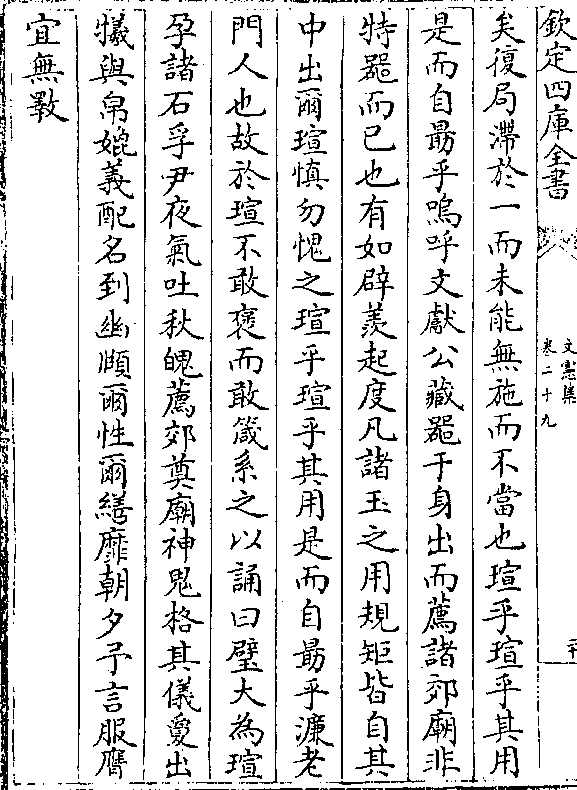 欽定四庫全書
文憲集
卷二十九
矣復局滯於一而未能無施而不當也瑄乎瑄乎其用
是而自勗乎嗚呼文獻公藏器于身出而薦諸郊廟非
特器而已也有如辟羨起度凡諸玉之用規矩皆自其
中出爾瑄慎勿愧之瑄乎瑄乎其用是而自勗乎濂老
門人也故於瑄不敢褒而敢箴系之以誦曰璧大為瑄
孕諸石孚尹夜氣吐秋魄薦郊奠廟神鬼格其儀爰出
犧與帛媲義配名到幽賾爾性爾繕靡朝夕予言服膺
宜無斁